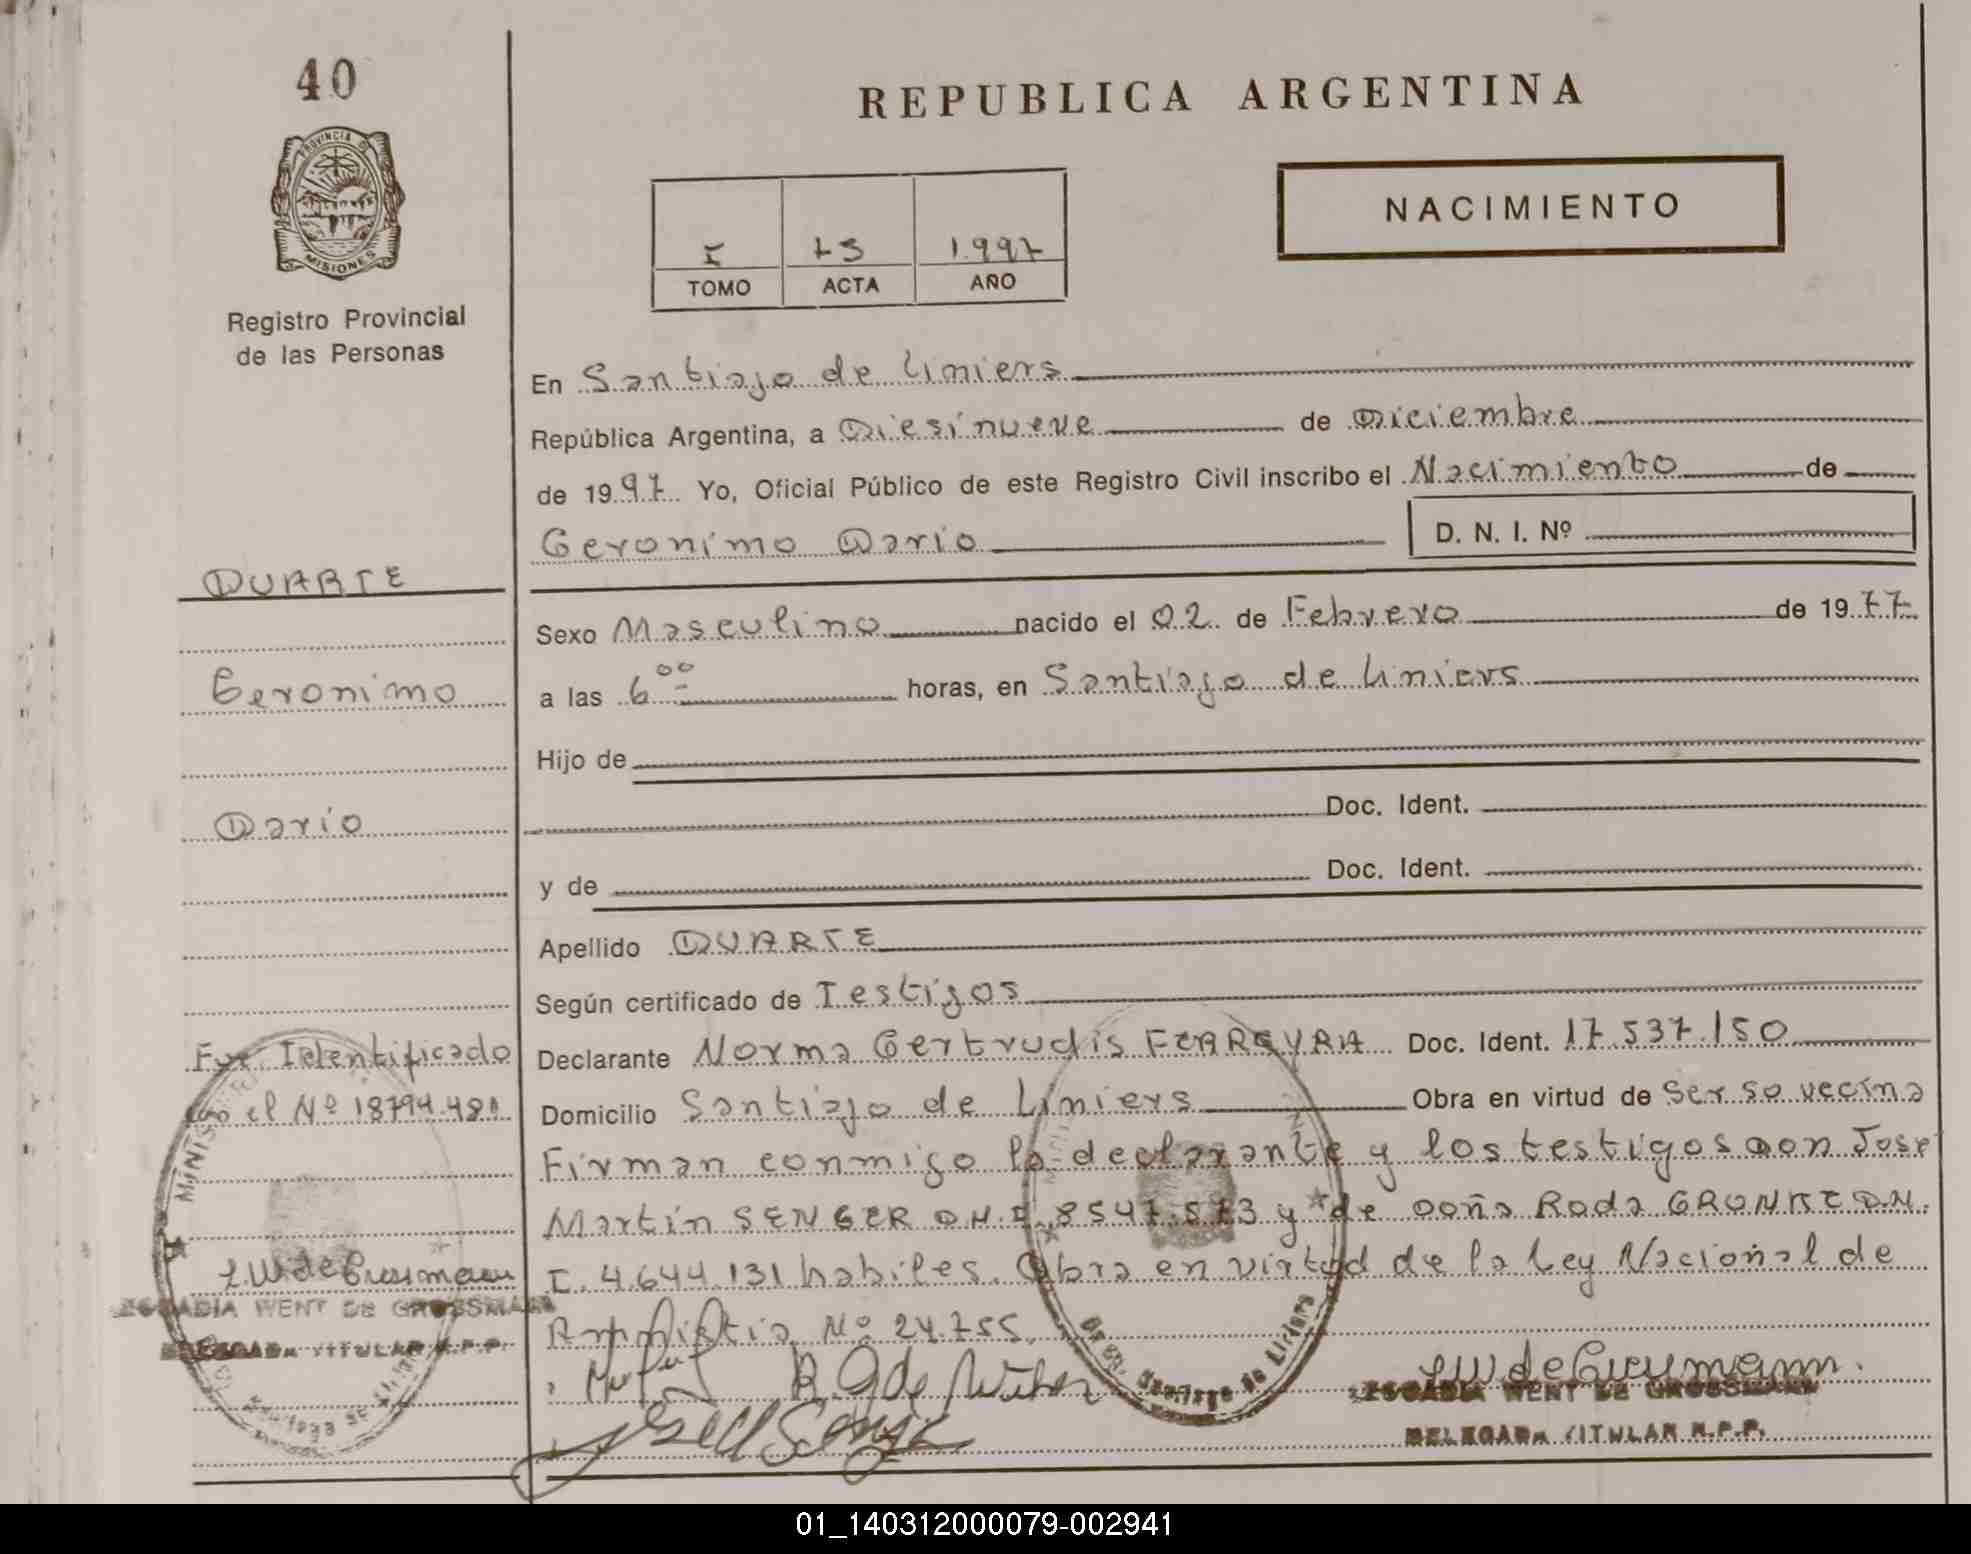 40
PROVINCIA DE
MISIONES
Registro Provincial
de las Personas
REPUBLICA ARGENTINA
NACIMIENTO
I 79 1.997
TOMO ACTA AÑO
En Santiago de Liniers
República Argentina, a Diesinueve de Diciembre
de 1997 Yo, Oficial Público de este Registro Civil inscribo el Nacimiento de
Geronimo Dario D. N. I. Nº
DUARTE
Geronimo
Dario
Sexo Masculino nacido el 02 de Febrero de 1977
a las 6 00 horas, en Santiago de Liniers
Hijo de
Doc. Ident.
y de Doc. Ident.
Apellido DUARTE
Según certificado de Testigos
Declarante Norma Gertrudis FERREYRA Doc. Ident. 17.537.150
Domicilio Santiago de Liniers Obra en virtud de ser so vecina
Firman conmigo la declarante y los testigos Don Jose
Martin SENGER D.N.I. 8547.573 y de Doña Roda D.N.
I. 4.644.131 habiles. Obra en virtud de la Ley Nacional de
Amnistia Nº 24.755
Fue Identificado
el Nº 18794.481
L W de Grossmann
LEOCADIA WENT DE GROSSMANN
DELEGADA TITULAR R.P.P.
L W de Grossmann.
LEOCADIA WENT DE GROSSMANN
DELEGADA TITULAR R.P.P.
Santiago de Liniers
01_140312000079-002941